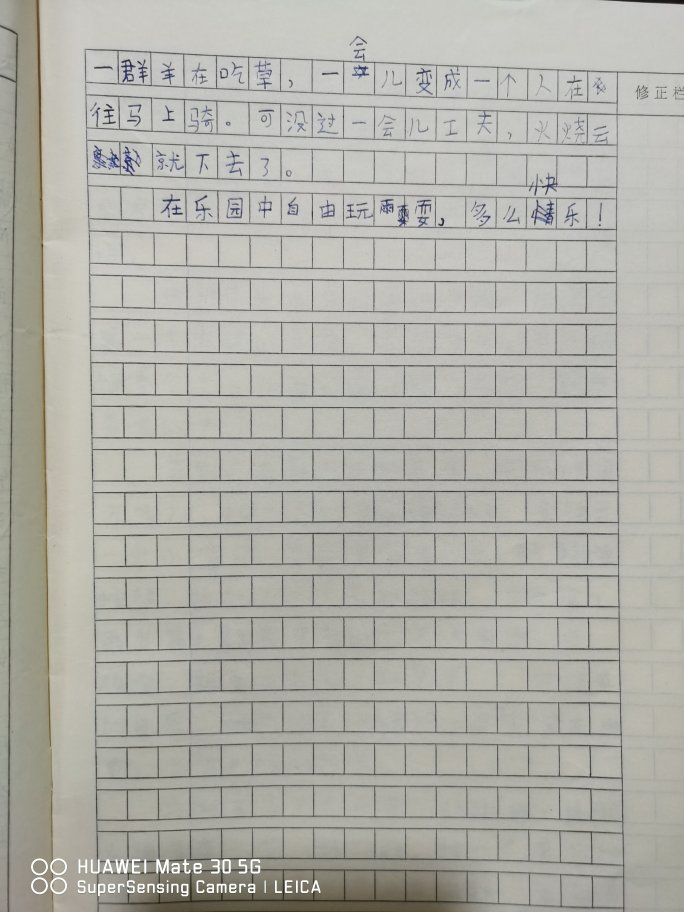 会
一群羊在吃草，一儿变成一个人在
修正栏
往马上骑。可没过一会儿工夫，火烧云
就下去了。
快
在乐园中自由玩耍，多么乐！
HUAWEI Mate 30 5G
SuperSensing Camera | LEICA